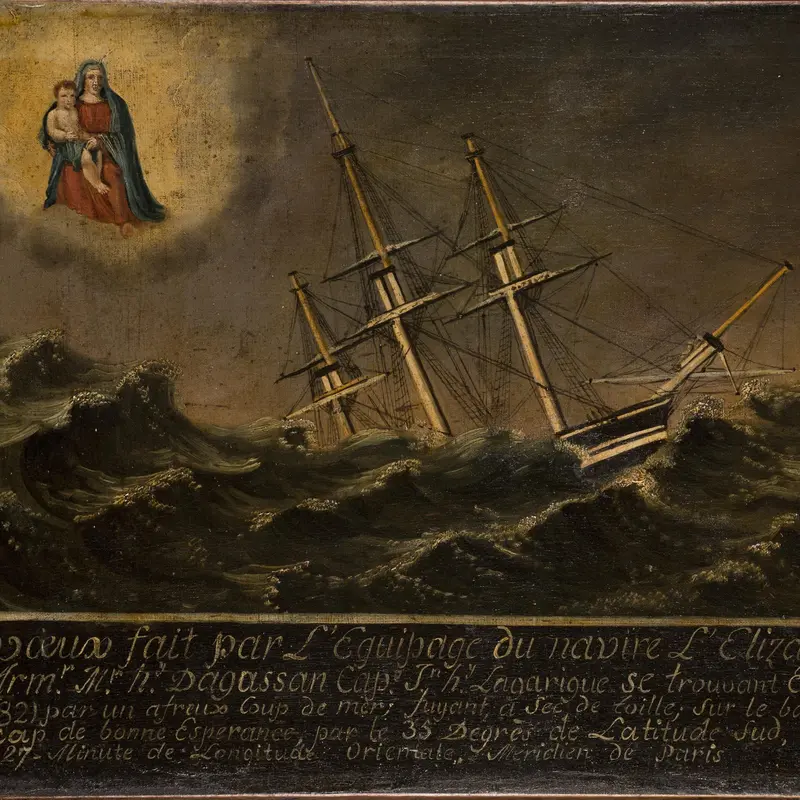 vœux fait par L'Equipage du navire L'Eliza
Armr. Mr. hy. Dagassan Cape. Jn. hy. Lagarigue se trouvant
82) par un afreux Coup de mer; fuyant, a Sec de Toille, Sur le ba
cap de bonne Esperance, par le 35 Degrès de Latitude Sud,
27 Minute de Longitude Orientale, Meridien de Paris